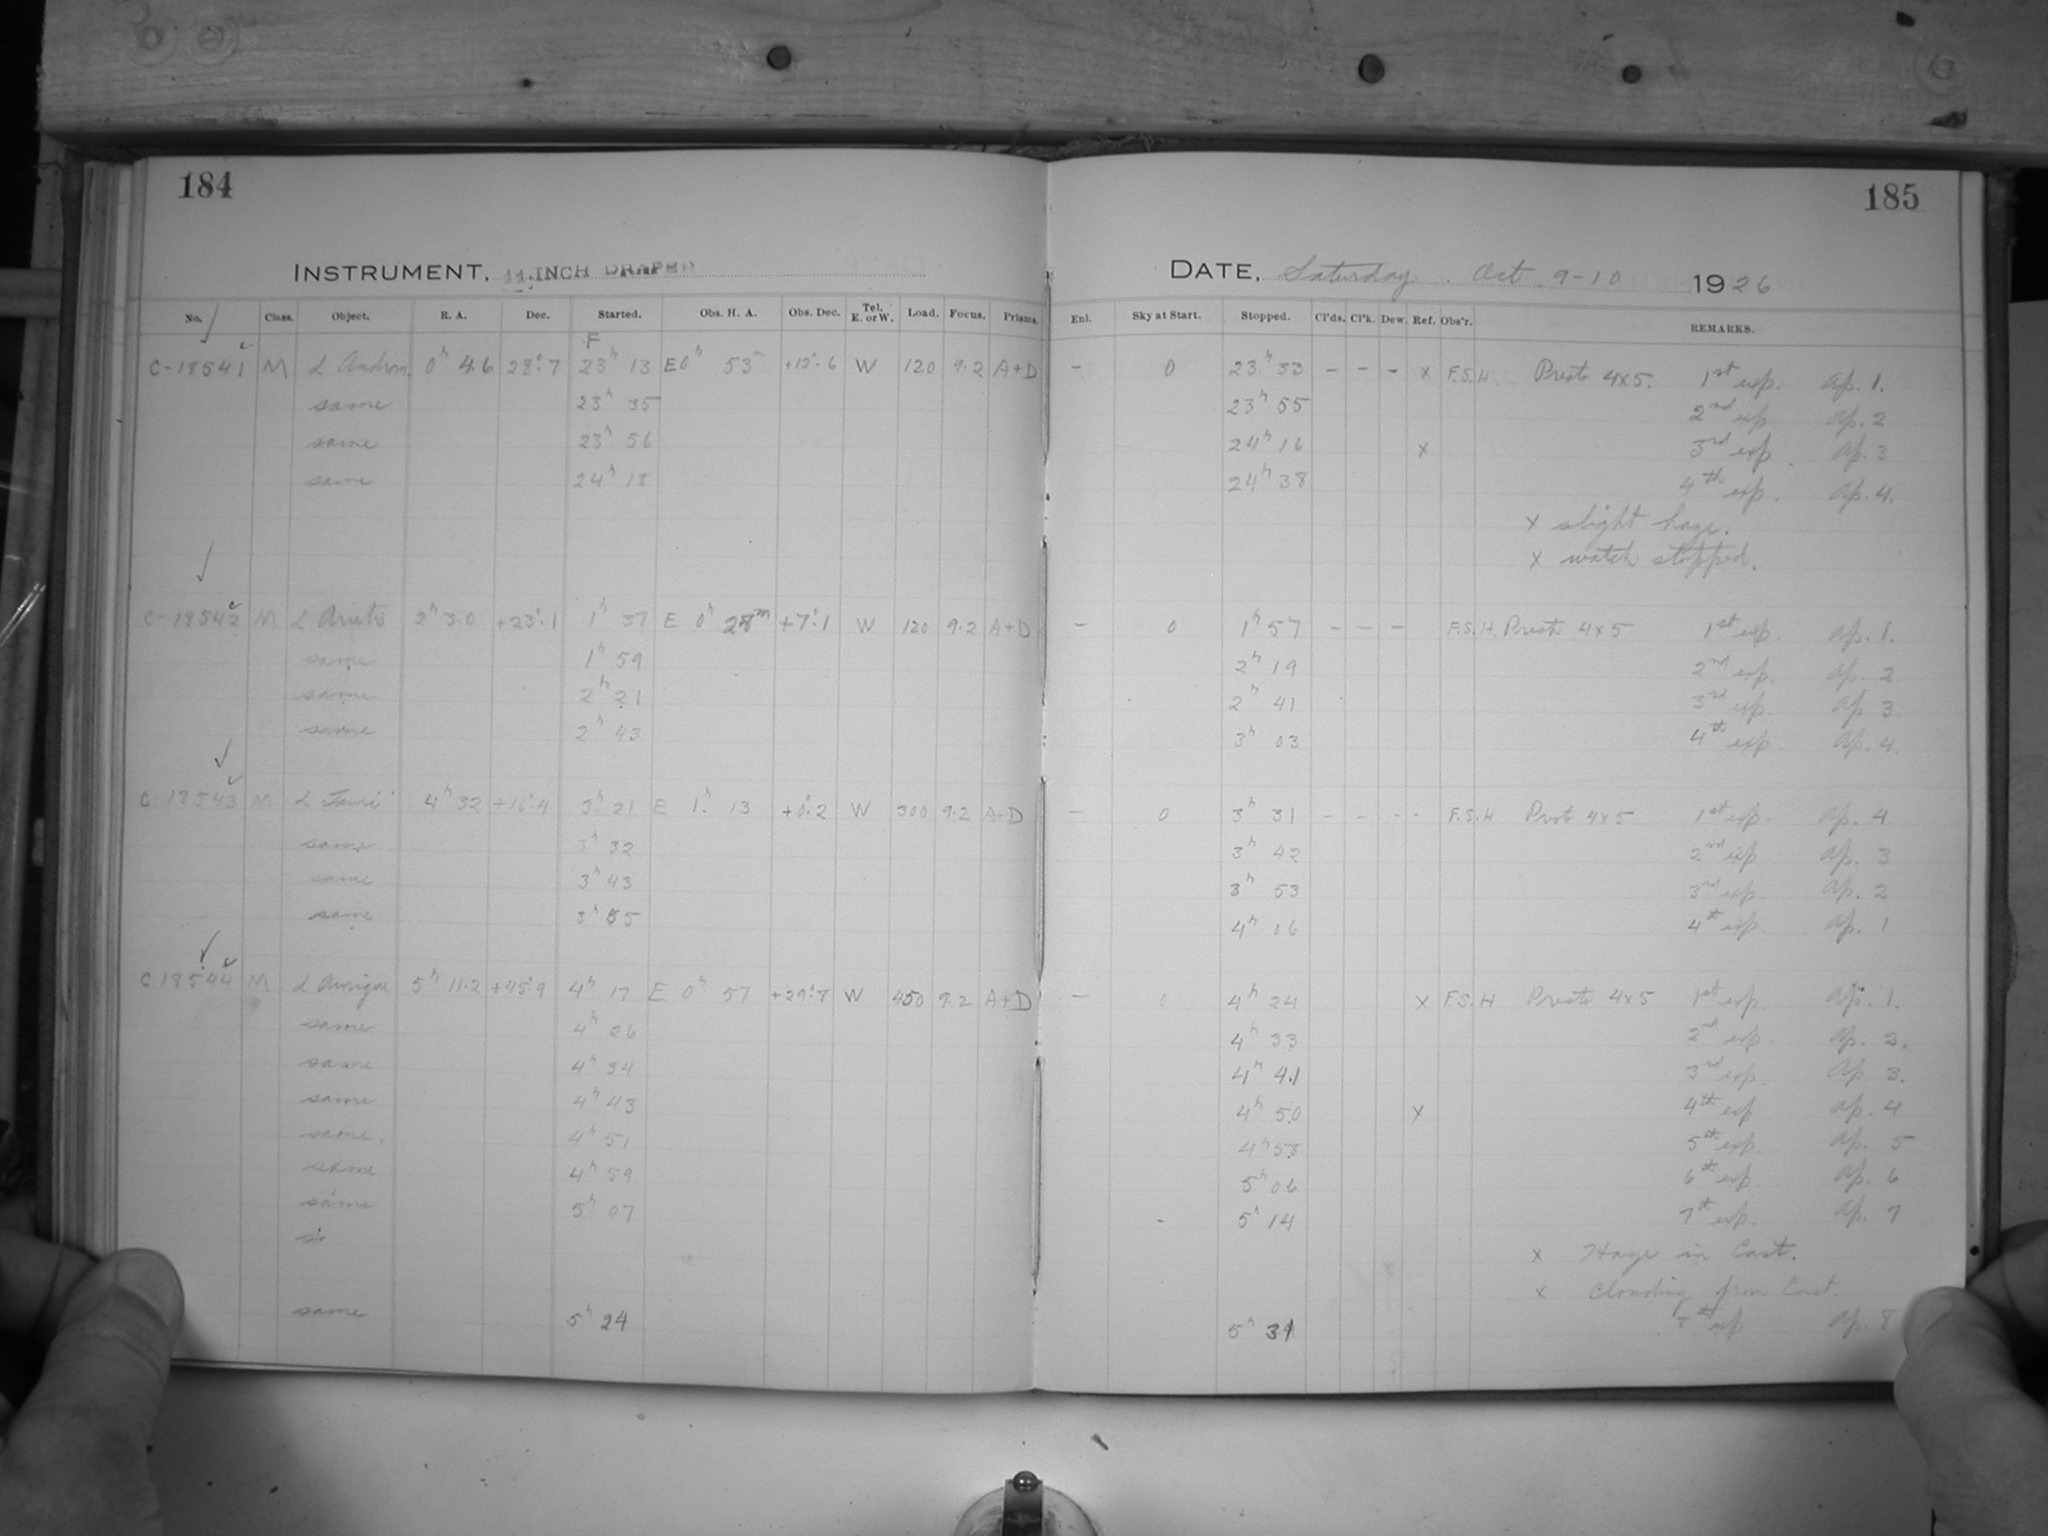 184
185
INSTRUMENT. 11 INCH DRAPER
DATE. Saturday Oct 9-10 1926
No. Class. Object. R. A. Dec. Started. Obs. H. A. Obs. Dec. Tel. E. or W. Load. Focus. Prisms. Enl. Sky at Start. Stopped. Cl'ds. Cl'k. Dew. Ref. Obs'r. REMARKS.
F
C-18541 M α Androm. 0h 4.6 28°.7 23h 13 E 0h 53m +12°.6 W 120 9.2 A+D - 0 23h 33 - - - x F.S.H. Presto 4x5. 1st exp. ap. 1.
same 23h 35 23h 55 2nd exp. ap. 2
same 23h 56 24h 16 x 3rd exp. ap. 3
same 24h 18 24h 38 4th exp. ap. 4.
x slight haze.
x watch stopped.
C-18542 M α Arietis 2h 3.0 +23°.1 1h 37 E 0h 28m +7°.1 W 120 9.2 A+D - 0 1h 57 - - - F.S.H. Presto 4x5 1st exp. ap. 1.
same 1h 59 2h 19 2nd exp. ap. 2
same 2h 21 2h 41 3rd exp. ap 3
same 2h 43 3h 03 4th exp. ap. 4.
C 18543 M α Tauri 4h 32 +16°.4 3h 21 E 1h 13 +0°.2 W 300 9.2 A+D - 0 3h 31 - - - - F.S.H Presto 4x5 1st exp. ap. 4
same 3h 32 3h 42 2nd exp ap. 3
same 3h 43 3h 53 3rd exp. ap. 2
same 3h 55 4h 06 4th exp. ap. 1
C 18544 M α Aurigae 5h 11.2 +45°.9 4h 17 E 0h 57 +29°.8 W 450 9.2 A+D - 0 4h 24 x F.S.H Presto 4x5 1st exp. ap. 1.
same 4h 26 4h 33 2nd exp. ap. 2.
same 4h 34 4h 41 3rd exp. ap. 3.
same 4h 43 4h 50 x 4th exp ap. 4
same. 4h 51 4h 58 5th exp. ap. 5
same 4h 59 5h 06 6th exp. ap. 6
same 5h 07 - 5h 14 7th exp. ap. 7
x Haze in East.
x Clouding from East.
same 5h 24 5h 31 8th exp ap. 8